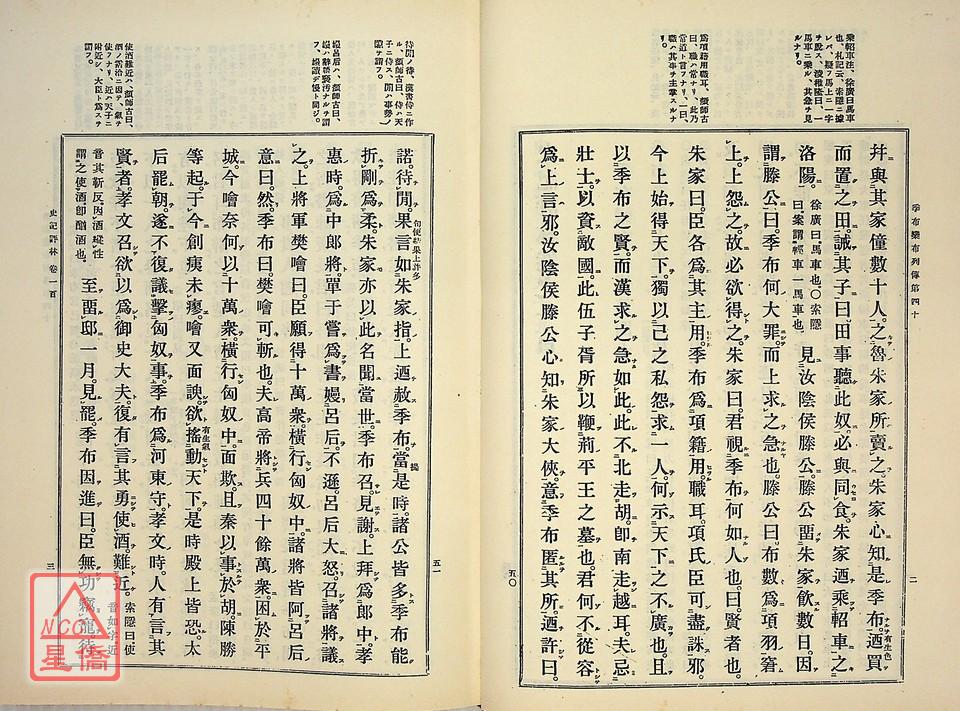 季布欒布列傳第四十
二
乘軺車注、徐廣曰馬車
也、札記云、索隱ニ據
レバ、疑フ馬上ニ一字
ヲ脫ス、凌稚隆曰、一
馬車ニ乘ル、其急ヲ見
ルナリ。
爲項籍用職耳、顏師古
曰、職ハ常ナリ、此乃
常道ト言フナリ、一曰、
職ハ其事ヲ主掌スルナ
リ。
幷與其家僮數十人。之魯朱家所賣之。朱家心知是季布。迺買
而置之田。誡其子曰。田事聽此奴。必與同食。朱家迺乘軺車之
洛陽。徐廣曰。馬車也。○索隱曰。案謂輕車一馬車也。見汝陰侯滕公。滕公畱朱家飮數日。因
謂滕公曰。季布何大罪。而上求之急也。滕公曰。布數爲項羽窘
上。上怨之。故必欲得之。朱家曰。君視季布何如人也。曰賢者也。
朱家曰。臣各爲其主用。季布爲項籍用。職耳。項氏臣可盡誅邪。
今上始得天下。獨以己之私怨求一人。何示天下之不廣也。且
以季布之賢。而漢求之急如此。此不北走胡。卽南走越耳。夫忌
壯士。以資敵國。此伍子胥所以鞭荊平王之墓也。君何不從容
爲上言邪。汝陰侯滕公心知朱家大俠。意季布匿其所。迺許曰
五〇
待閒ノ待、漢書侍ニ作
ル、顏師古曰、侍ハ天
子ニ侍ス、閒ハ事務ノ
隙ヲ謂フ。
嫚呂后ハ、顏師古曰、
嫚ハ辭語褻汚ナルヲ謂
フ、嫚讀ンデ慢ト同ジ。
使酒難近ハ、顏師古曰、
酒ノ霑洽ニ因テ、氣ヲ
使フナリ、近ハ天子ニ
附近シ、大臣ト爲スヲ
謂フ。
諾。待閒。果言如朱家指。上迺赦季布。當是時。諸公皆多季布能
折剛爲柔。朱家亦以此名聞當世。季布召見謝。上拜爲郎中。孝
惠時。爲中郎將。單于嘗爲書嫚呂后。不遜。呂后大怒。召諸將議
之。上將軍樊噲曰。臣願得十萬衆。橫行匈奴中。諸將皆阿呂后
意曰。然。季布曰。樊噲可斬也。夫高帝將兵四十餘萬衆。困於平
城。今噲奈何以十萬衆。橫行匈奴中。面欺。且秦以事於胡。陳勝
等起。于今創痍未瘳。噲又面諛。欲搖動天下。是時殿上皆恐。太
后罷朝。遂不復議擊匈奴事。季布爲河東守。孝文時。人有言其
賢者。孝文召。欲以爲御史大夫。復有言其勇使酒難近。索隱曰使音如字。近
音其靳反。因酒縱性謂之使酒。卽酗酒也。至畱邸一月。見罷。季布因進曰。臣無功竊寵。待
五一
史記評林 卷一百
三
NCC
星僑